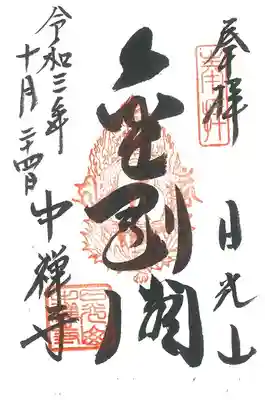 奉拝
日光山
金剛閣
中禅寺
令和三年
十月二十四日